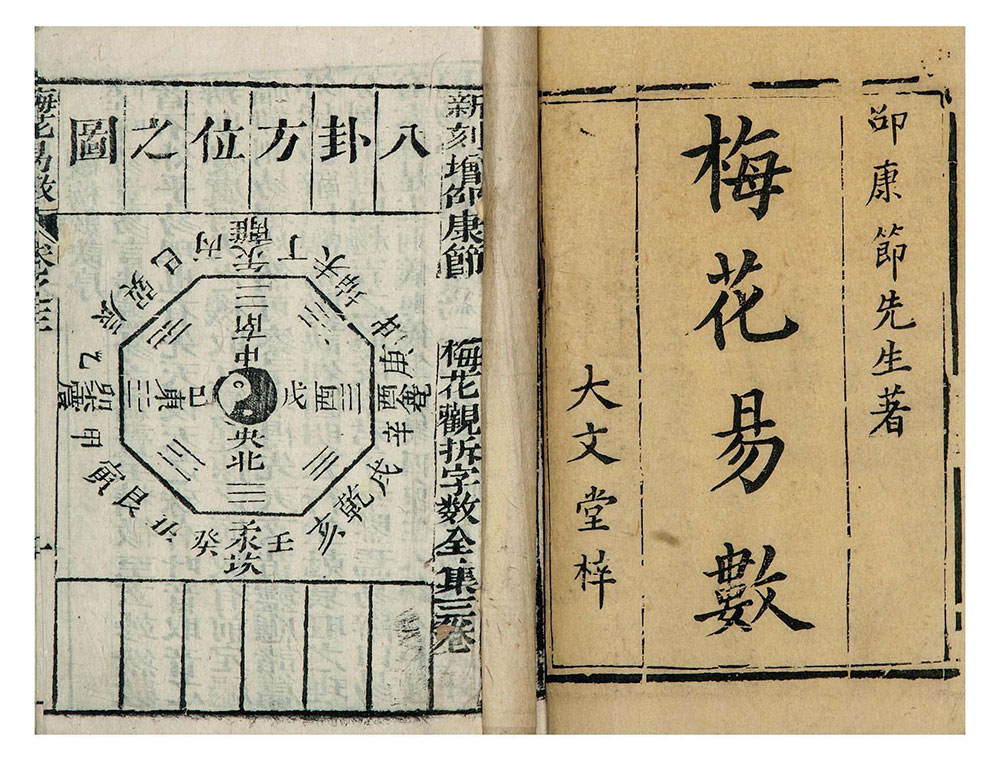 邵康節先生著
梅花易數
大文堂梓
新刻增邵康節 梅花觀拆字數全集三卷
八卦方位之圖
離午
丁
未坤申
庚
酉兌
辛
戌乾亥
壬
子坎
癸
丑艮寅
甲
卯震
乙
辰巽巳
丙
南
中央
北
東
西
戊
巳
梅花易數 卷之三